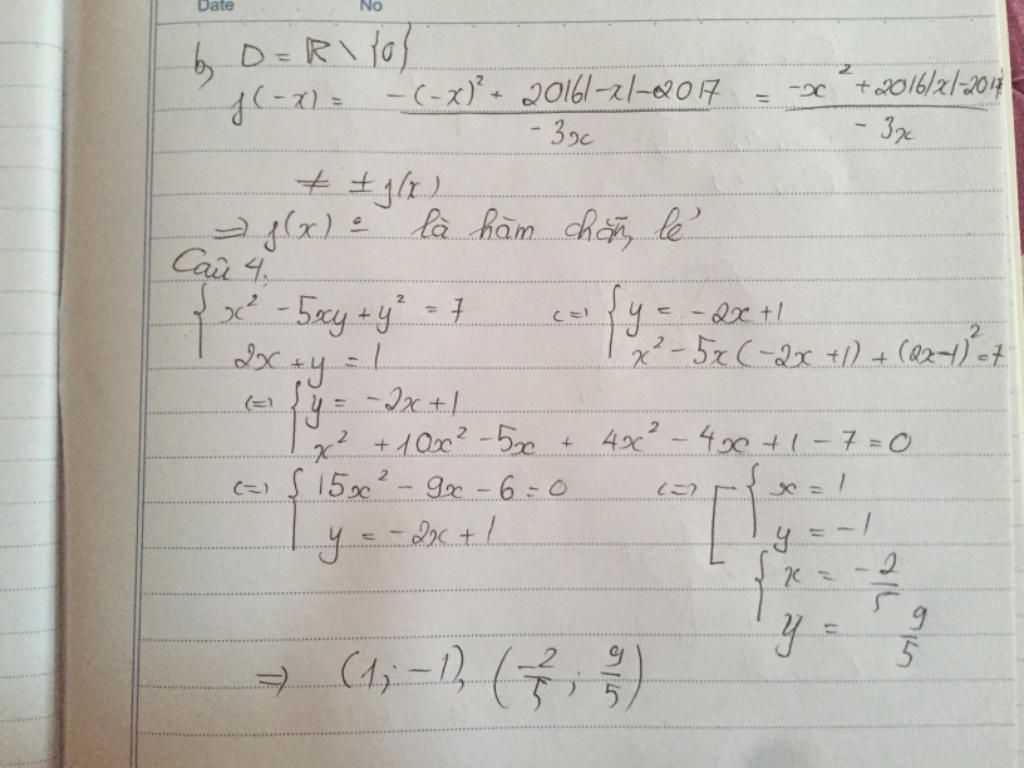 Date No
b, D = R \ {0}
f(-x) = \frac{-(-x)^2 + 2016|-x|-2017}{-3x} = \frac{-x^2 + 2016|x|-2017}{-3x}
≠ ± f(x)
=> f(x) là hàm chẵn, lẻ
Câu 4,
{ x^2 - 5xy + y^2 = 7 <=> { y = -2x+1
2x + y = 1 x^2 - 5x(-2x+1) + (2x-1)^2 = 7
<=> { y = -2x+1
x^2 + 10x^2 - 5x + 4x^2 - 4x + 1 - 7 = 0
<=> { 15x^2 - 9x - 6 = 0 <=> [ { x = 1
y = -2x + 1 y = -1
{ x = \frac{-2}{5}
y = \frac{9}{5}
=> (1; -1), (\frac{-2}{5}; \frac{9}{5})